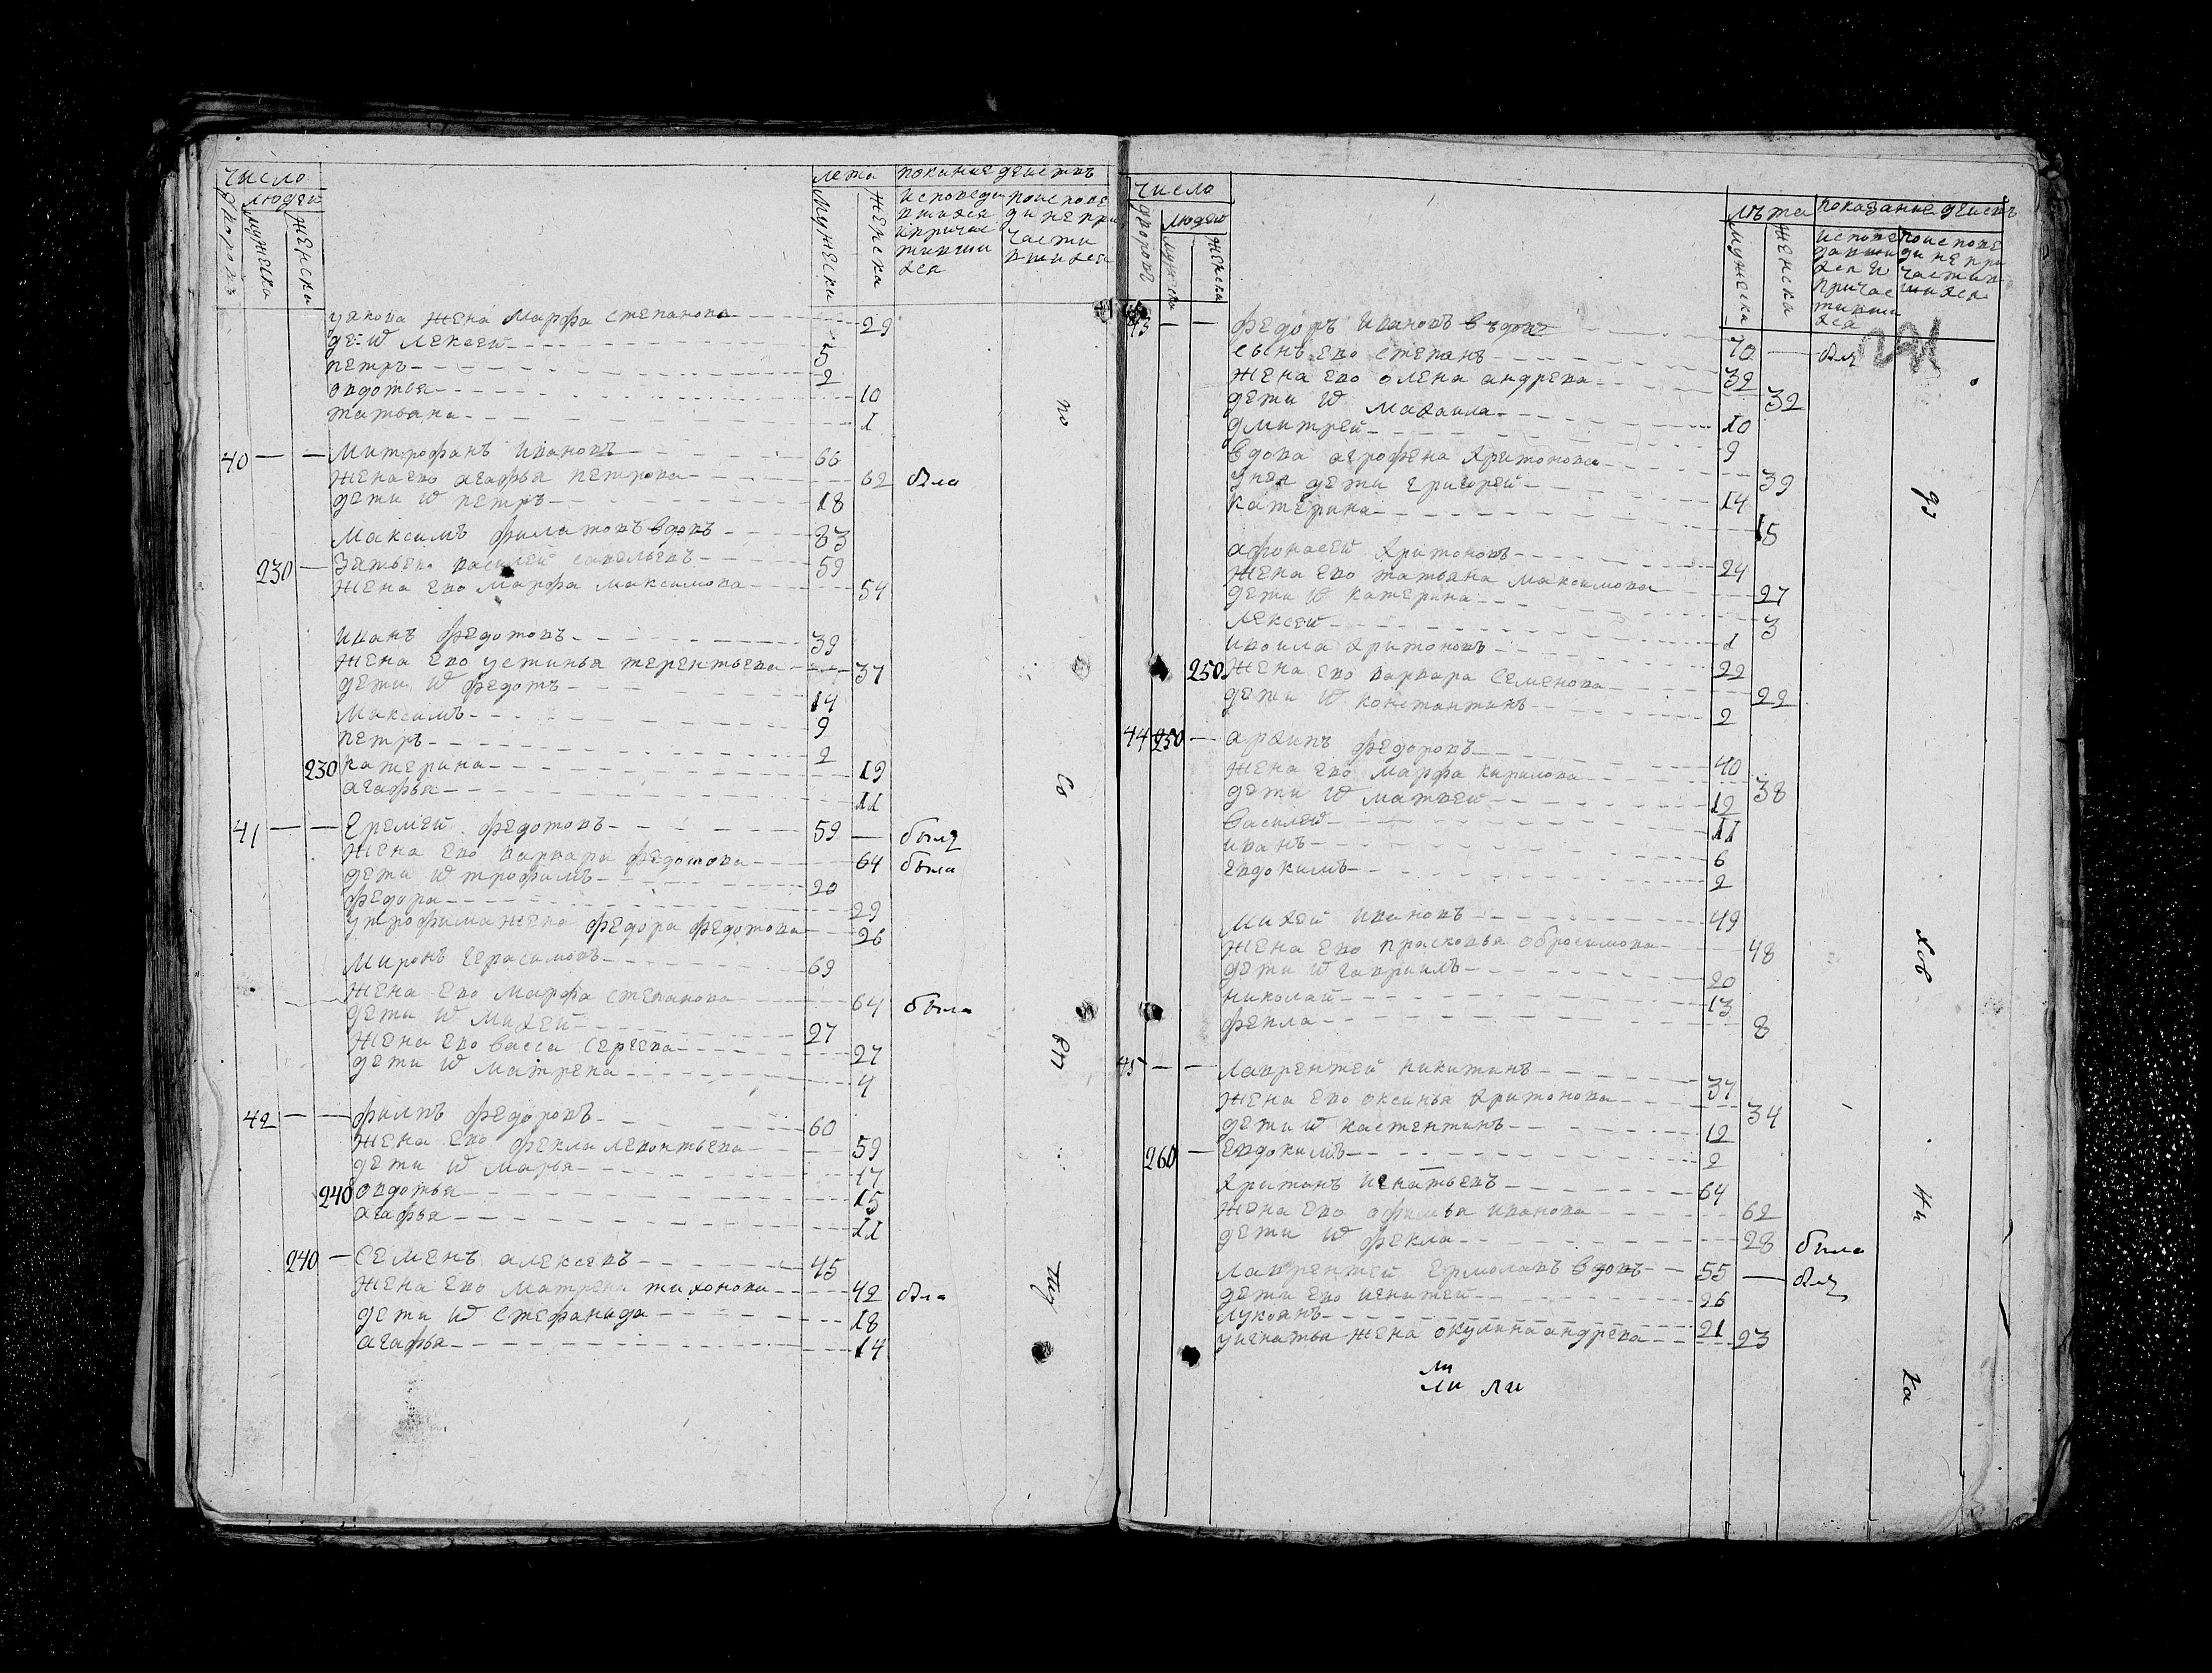 число
людей
дворовъ
мужеска
женска
лета
мужески
женски
показание действъ
исповеди
вшихся
и причас
тивши
хся
по исповеди не при
части
вшихся
уякова жена марфа степанова 29
де: W лексей 5
петръ 2
овдотья 10
татьяна 1
40 — — митрофанъ ивановъ 66
жена ево агафья петрова 62 была
дети W петръ 18
максимъ филатовъ вдовъ 83
230 — зять ево василей савельевъ 59
жена ево марфа максимова 54
иванъ федотовъ 39
жена ево устинья терентьева 37
дети W федотъ 14
максимъ 9
петръ 2
230 катерина 19
агафья 11
41 — — еремей федотовъ 59 — былъ
жена ево варвара федотова 64 была
дети W трофимъ 20
федора 29
утрофима жена федора федотова 26
миронъ герасимовъ 69
жена ево марфа степанова 64 была
дети W михей 27
жена ево васса сергева 27
дети W матрена 4
42 — — филипъ федоровъ 60
жена ево фекла левонтьева 59
дети W марья 17
240 овдотья 15
агафья 11
240 — семенъ алексевъ 45
жена ево матрена тихонова 42 была
дети W стефанида 18
агафья 14
по
Со
рп
число
людей
дворовъ
мужеска
женска
лѣта
мужеска
женска
показание действъ
испове
давши
хся и
причас
тивши
хся
по испове
ди не при
частив
шихся
43 — — федоръ ивановъ вдовъ 70 — былъ
сынъ ево степанъ 39
жена ево олена андрева 32
дети W михаила 10
дмитрей 9
вдова агрофена харитонова 39
унея дети григорей 14
катерина 15
афонасей харитоновъ 24
жена ево татьяна максимова 27
дети W катерина 3
лексей 1
ивоила харитоновъ 22
250 жена ево варвара семенова 22
дети W константинъ 2
44 250 — архипъ федоровъ 40
жена ево марфа кирилова 38
дети W матвей 12
василей 11
иванъ 6
евдокимъ 2
михей ивановъ 49
жена ево прасковья обросимова 48
дети W гавриилъ 20
николай 13
фекла 8
45 — — лаврентей никитинъ 37
жена ево оксинья харитонова 34
дети W костентинъ 12
260 — евдокимъ 2
харитонъ игнатьевъ 64
жена ево офимья иванова 62
дети W фекла 28 была
лаврентей ермолавъ вдовъ 55 — былъ
дети ево игнатей 26
лукоянъ 21
уигнатья жена окулина андрева 23
ли
ли ли
хов
ни
ка